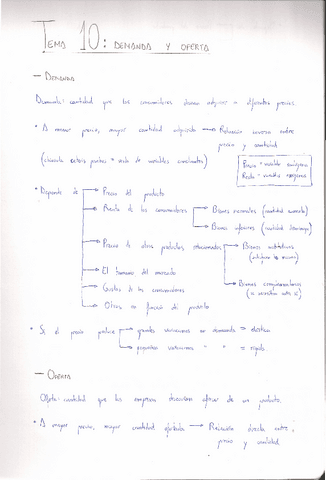 TEMA 10: DEMANDA Y OFERTA
— DEMANDA
Demanda: cantidad que los consumidores desean adquirir a diferentes precios.
• A menor precio, mayor cantidad adquirida → Relación inversa entre
precio y cantidad
(cláusula ceteris paribus = resto de variables constantes)
Precio = variable endógena
Resto = variables exógenas
• Depende de → Precio del producto
→ Renta de los consumidores → Bienes normales (cantidad aumenta)
→ Bienes inferiores (cantidad disminuye)
→ Precio de otros productos relacionados → Bienes sustitutivos
→ Bienes complementarios
→ El tamaño del mercado
→ Gustos de los consumidores
→ Otros en función del producto
• Si el precio produce → grandes variaciones en demanda = elástica
→ pequeñas variaciones " " = rígida
— OFERTA
Oferta: cantidad que las empresas desean ofrecer de un producto.
• A mayor precio, mayor cantidad ofertada → Relación directa entre
precio y cantidad.